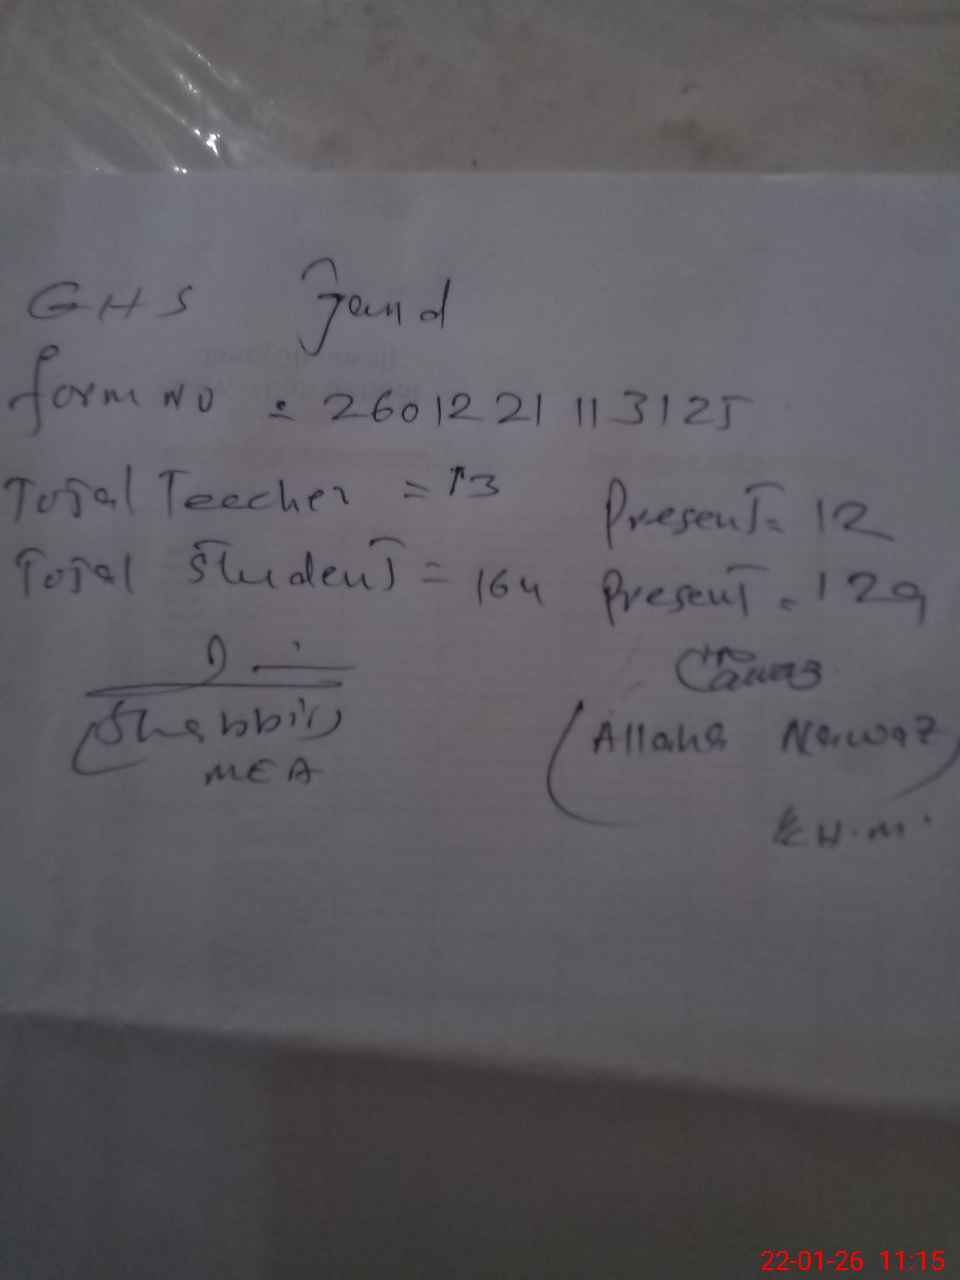 GHS Jand
form NO = 2601221113125
Total Teecher = 13 Present = 12
Total Student = 164 Present = 129
(Shabbir)
MEA
(Allaha Nawaz)
H.M.
22-01-26 11:15